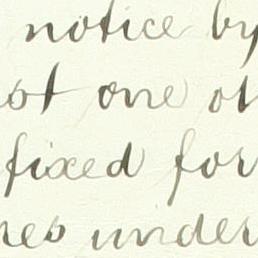 notice by
st one o
fixed for
nes under